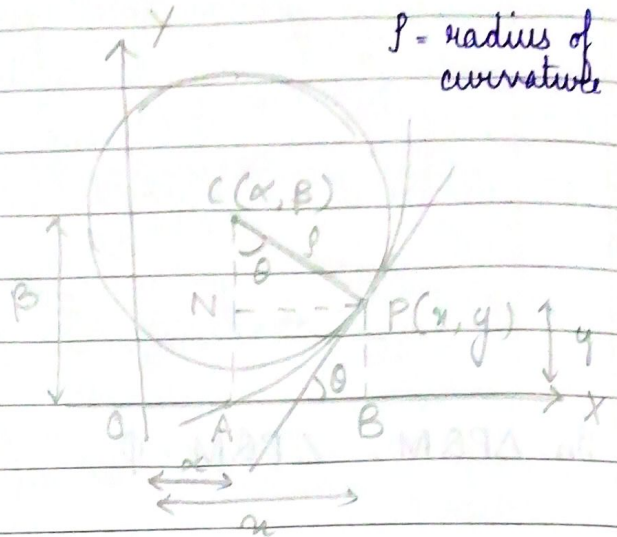 ρ = radius of
curvature
Y
C(α, β)
ρ
θ
β
N
P(x, y)
y
θ
O
A
B
X
α
x